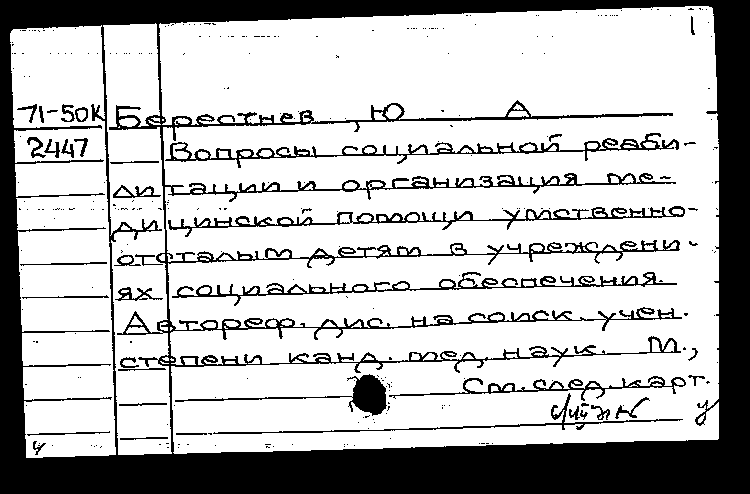 1
71-50К Берестнев, Ю. А
2447 Вопросы социальной реаби-
литации и организация ме-
дицинской помощи умственно-
отсталым детям в учреждени-
ях социального обеспечения.
Автореф. дис. на соиск. учен.
степени канд. мед. наук. М.,
См. след. карт.
у
ч